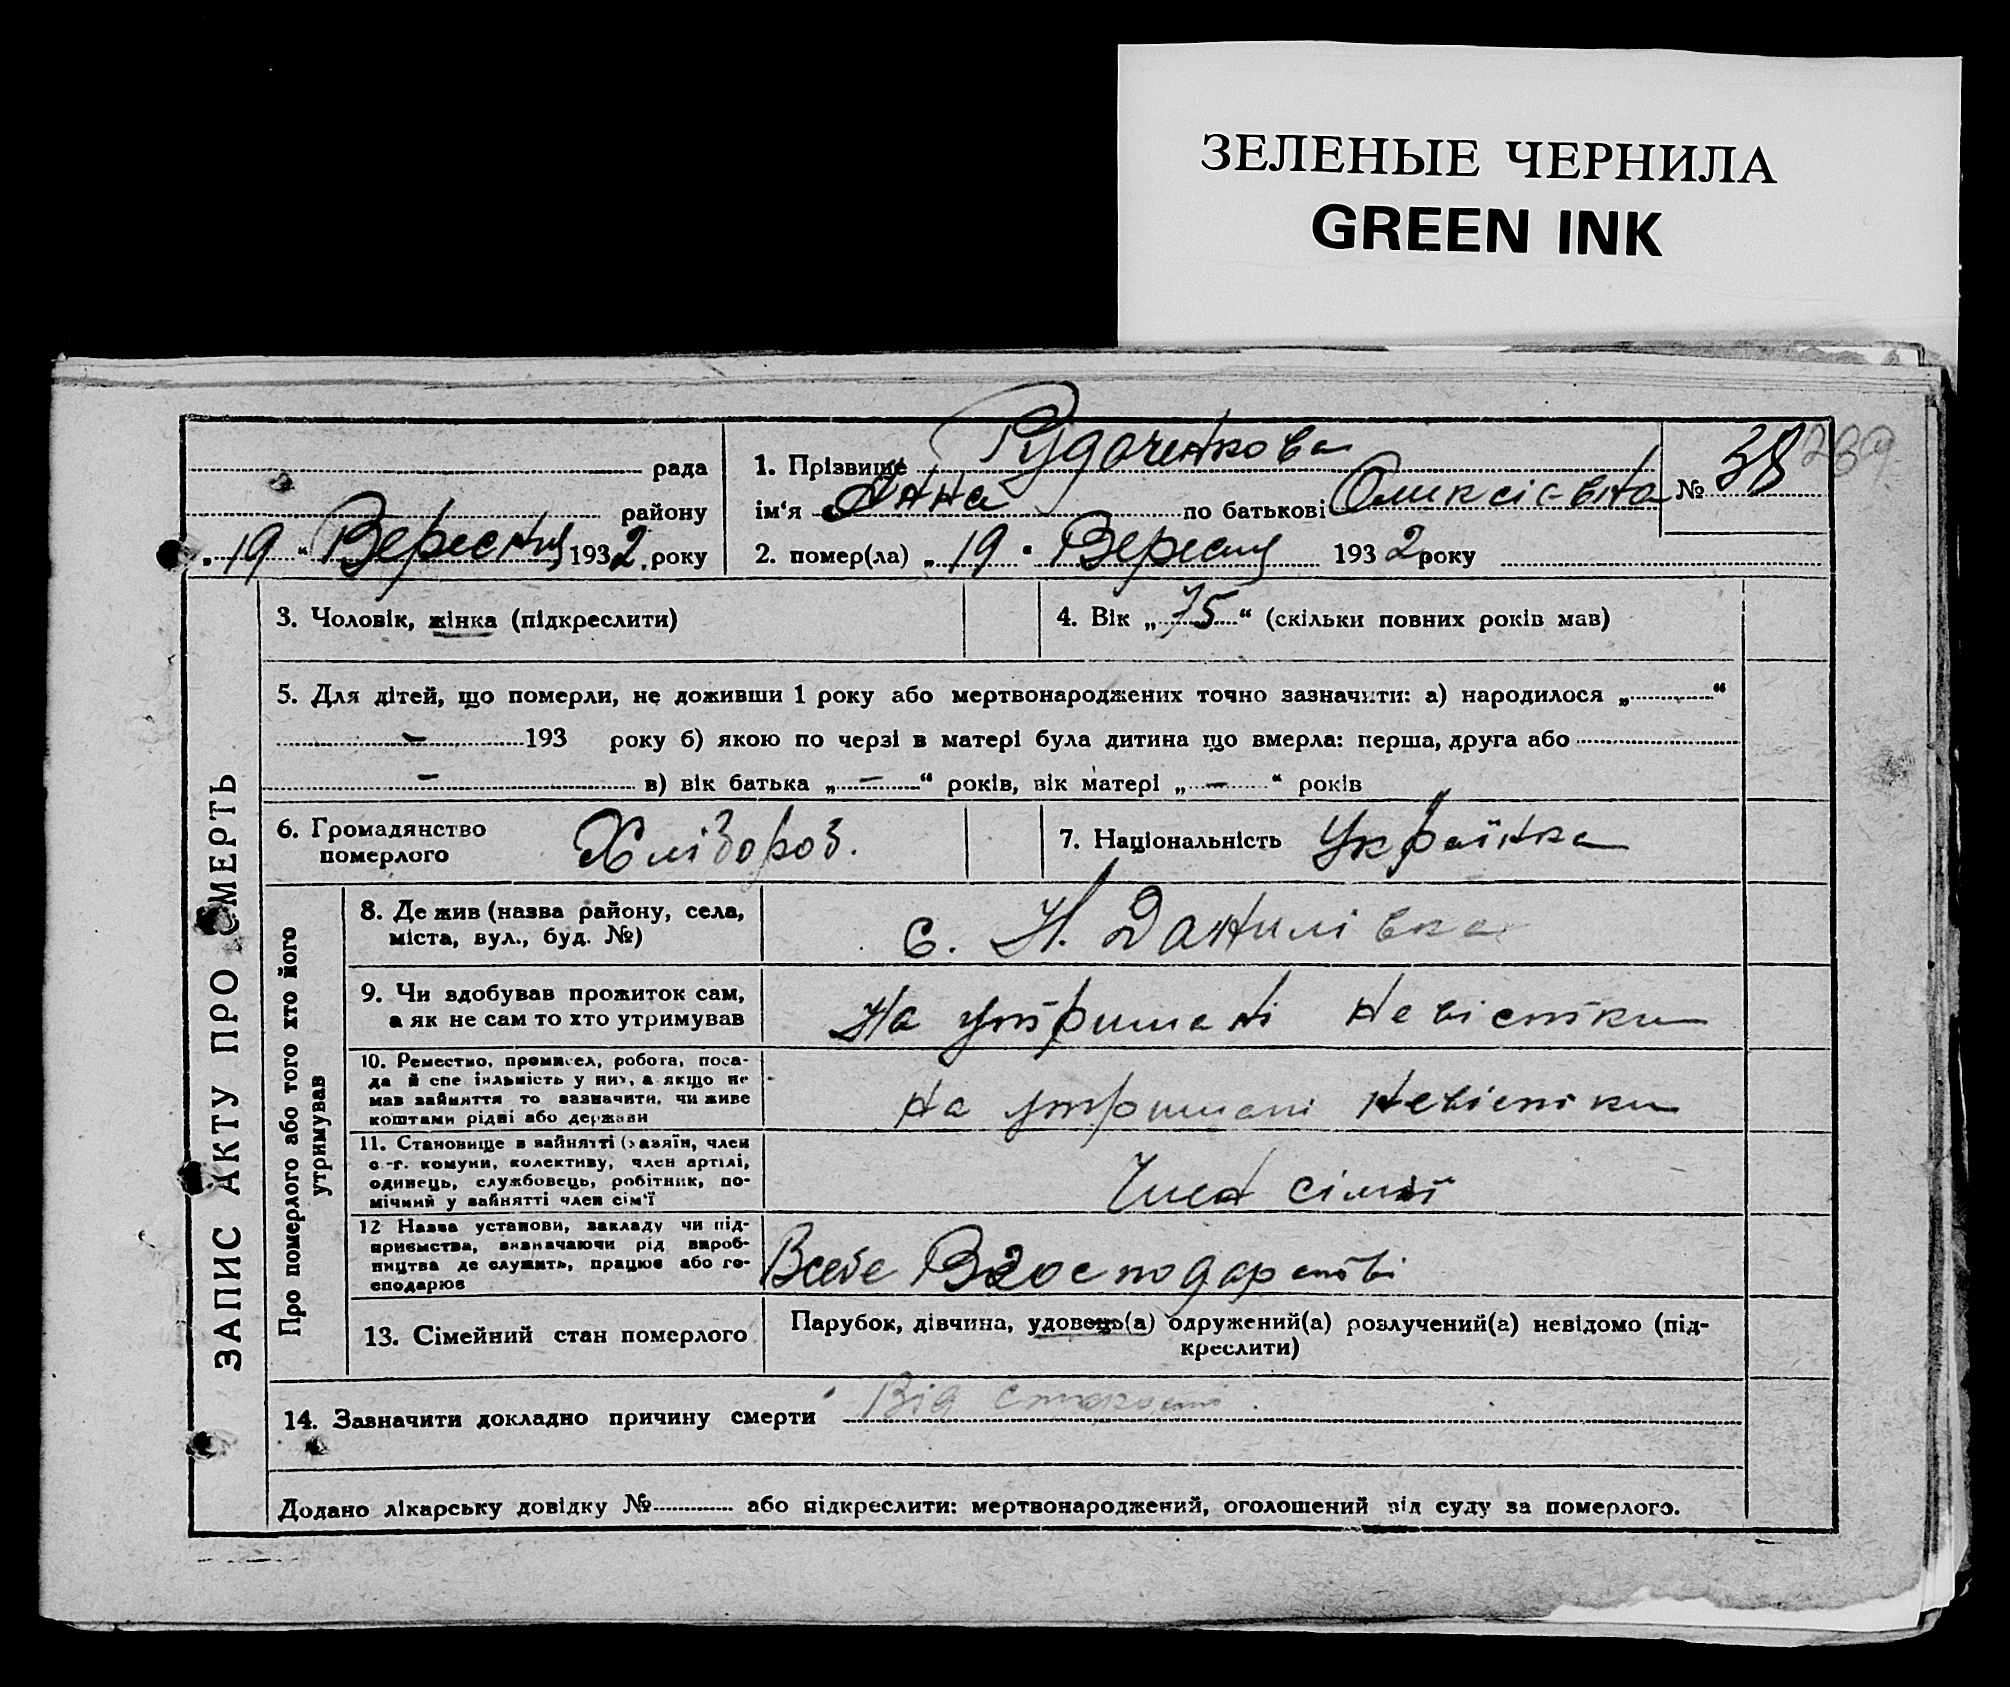 ЗЕЛЕНЫЕ ЧЕРНИЛА
GREEN INK
рада
району
„19“ Вересня 1932 року
1. Прізвище Рудоченкова
ім‘я Анна по батькові Оликсієвна
2. помер(ла) „19“ Вересня 1932 року
№ 38
239
ЗАПИС АКТУ ПРО СМЕРТЬ
3. Чоловік, жінка (підкреслити)
4. Вік „75“ (скільки повних років мав)
5. Для дітей, що померли, не доживши 1 року або мертвонароджених точно зазначити: а) народилося „ “
– 193 року б) якою по черзі в матері була дитина що вмерла: перша, друга або
– в) вік батька „–“ років, вік матері „–“ років
6. Громадянство
померлого
Хлібороб.
7. Національність Українка
Про померлого або того хто його
утримував
8. Де жив (назва району, села,
міста, вул., буд. №)
с. Н. Данилівка
9. Чи здобував прожиток сам,
а як не сам то хто утримував
На утримані невістки
10. Ремество, промисел, робота, поса-
да й спеціяльність у них, а якщо не
мав зайняття то зазначити, чи живе
коштами рідні або держави
на утримані невістки
11. Становище в зайнятті (хазяїн, член
с.-г. комуни, колективу, член артілі,
одинець, службовець, робітник, по-
мічний у зайнятті член сім'ї
Член сімьї
12 Назва установи, закладу чи під-
приємства, визначаючи рід вироб-
ництва де служить, працює або го-
сподарює
Всебе В господарстві
13. Сімейний стан померлого
Парубок, дівчина, удовець(а) одружений(а) розлучений(а) невідомо (під-
креслити)
14. Зазначити докладно причину смерти Від старости
Додано лікарську довідку № або підкреслити: мертвонароджений, оголошений від суду за померлого.